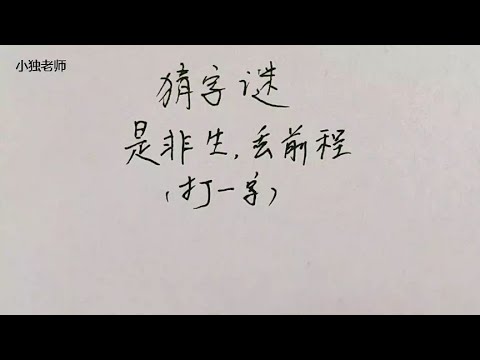 小独老师
猜字谜
是非生,丢前程
(打一字)